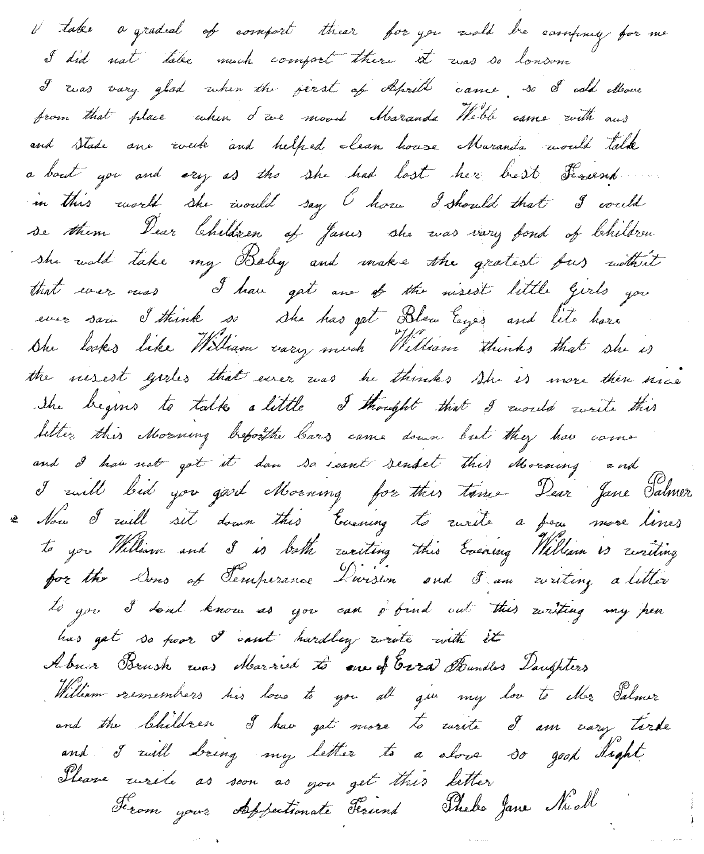 take a gradeal of comfort thear for you wold be company for me
I did not take much comfort there it was so lonsom
I was vary glad when the first of Aprill came so I cold Move
from that place when I we moved Maranda Webb came with aus
and stade one week and helped clean house Maranda would talk
a bout you and cry as tho she had lost her best Friend
in this world she would say O how I should that I could
se them Dear Children of Janes she was vary fond of Children
she wold take my Baby and make the gratest fus with it
that ever was I have got one of the nisest little Girls you
ever saw I think so she has got Blaw Eayes and lite hare
She looks like William vary much William thinks that she is
the nisest girles that ever was he thinks she is more then nice
She begins to talk a little I thought that I would write this
letter this Morning before the Cars came down but they hav come
and I hav not got it dun so I cant send it this Morning and
I will bid you good Morning for this time Dear Jane Palmer
Now I will sit down this Evening to write a few more lines
to you William and I is both writing this Evening William is writing
for the Sons of Temperance Division and I am writing a letter
to you I dont know as you can find out this writing my pen
has got so poor I cant hardley write with it
Abner Brush was Married to one of Ezra Rundles Daughters
William remembers his love to you all giv my lov to Mr Palmer
and the Children I hav got more to write I am vary tirde
and I will bring my letter to a close so good Night
Pleave write as soon as you get this letter
From your Affectionate Friend Phebe Jane Nicoll